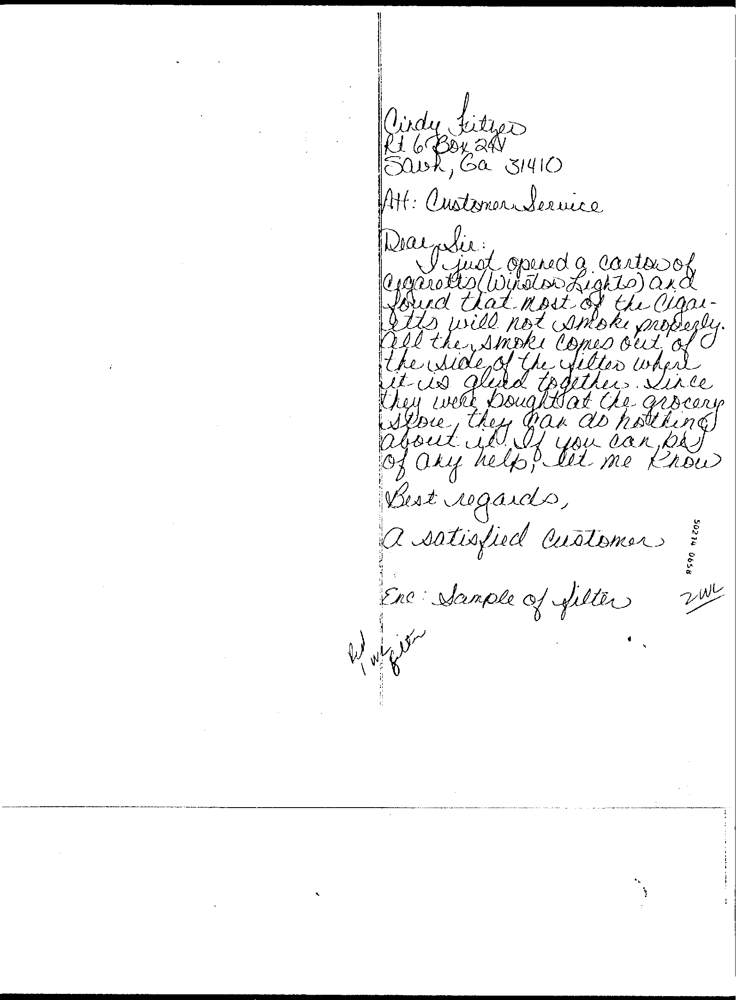 Cindy Fitzer
Rt 6 Box 24V
Savh, Ga 31410
Att: Customer Service
Dear Sir:
I just opened a carton of
cigaretts (Winston Lights) and
found that most of the cigar-
etts will not smoke properly.
All the smoke comes out of
the side of the filter where
it is glued together. Since
they were bought at the grocery
store, they can do nothing
about it. If you can be
of any help, let me know
Best regards,
A satisfied customer
50214 0658
Enc: Sample of filter
2WL
Rcd
1 WL
filter